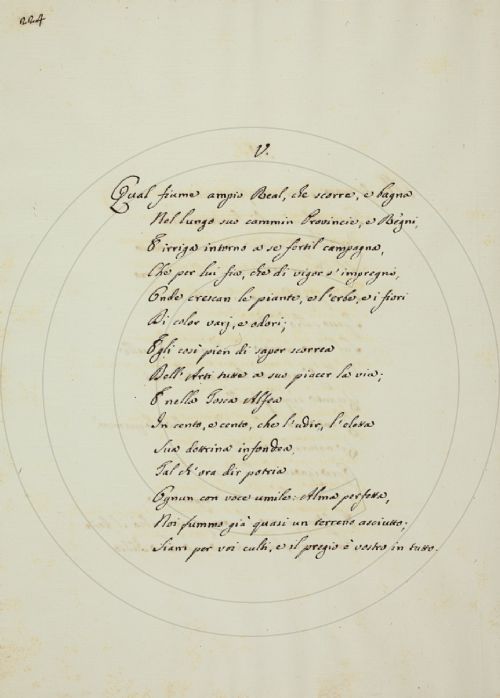 224
V.
Qual fiume ampio Real, che scorre, e bagna
Nel lungo suo cammin Provincie, e Regni,
E irriga intorno a se fertil campagna,
Che per lui fia, che di vigor s'impregna,
Onde crescan le piante, e l'erbe, e i fiori
Di color varj, e odori;
Egli così pien di saper scorrea
Dell'Arti tutte a suo piacer la via;
E nella Tosca Alfea
In cento, e cento, che l'udir, l'eletta
Sua dottrina infondea,
Tal ch'ora dir potria
Ognun con voce umile: Alma perfetta,
Noi fummo già quasi un terreno asciutto;
Siam per voi culti, e il pregio è vostro in tutto.